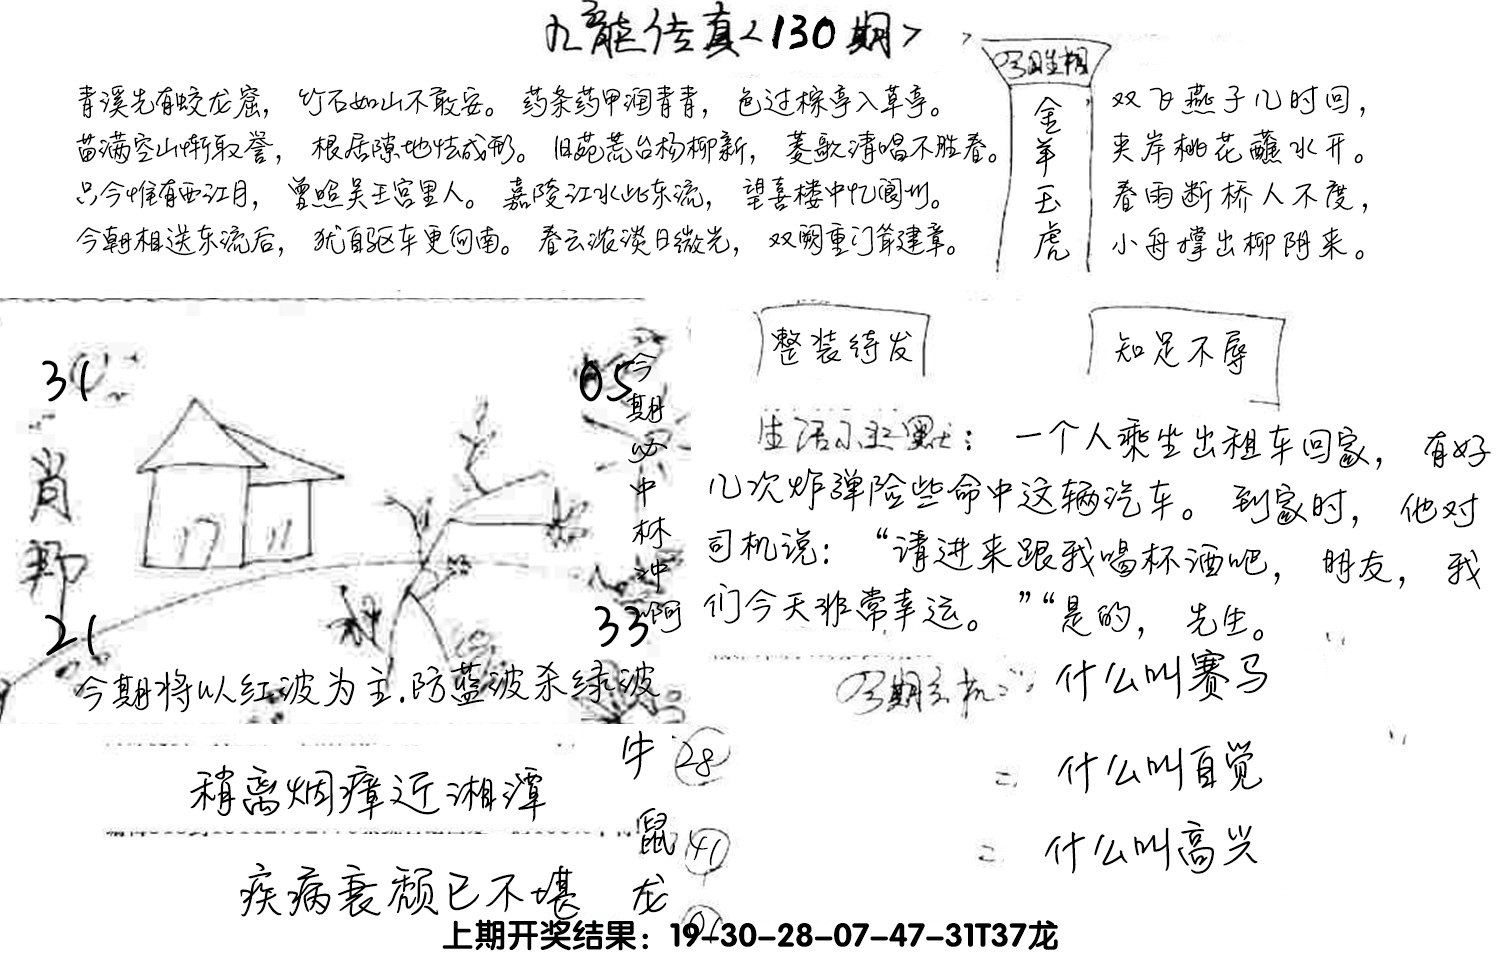 九龍传真<130期>
今期生相
金羊玉虎
青溪先有蛟龙窟，竹石如山不敢安。药条药甲润青青，色过棕亭入草亭。
苗满空山惭取誉，根居隙地怯成形。旧苑荒台杨柳新，菱歌清唱不胜春。
只今惟有西江月，曾照吴王宫里人。嘉陵江水此东流，望喜楼中忆阆州。
今朝相送东流后，犹自驱车更向南。春云浓淡日微光，双阙重门耸建章。
双飞燕子几时回，
夹岸桃花蘸水开。
春雨断桥人不度，
小舟撑出柳阴来。
整装待发
知足不辱
31
05
肖
21
33
今期必中林冲啊
今期将以红波为主.防蓝波杀绿波
生活小幽默：一个人乘坐出租车回家，有好
几次炸弹险些命中这辆汽车。到家时，他对
司机说：“请进来跟我喝杯酒吧，朋友，我
们今天非常幸运。”“是的，先生。
今期玄机：什么叫赛马
= 什么叫自觉
= 什么叫高兴
稍离烟瘴近湘潭
疾病衰颓已不堪
牛 28
鼠 41
龙
上期开奖结果：19-30-28-07-47-31T37龙